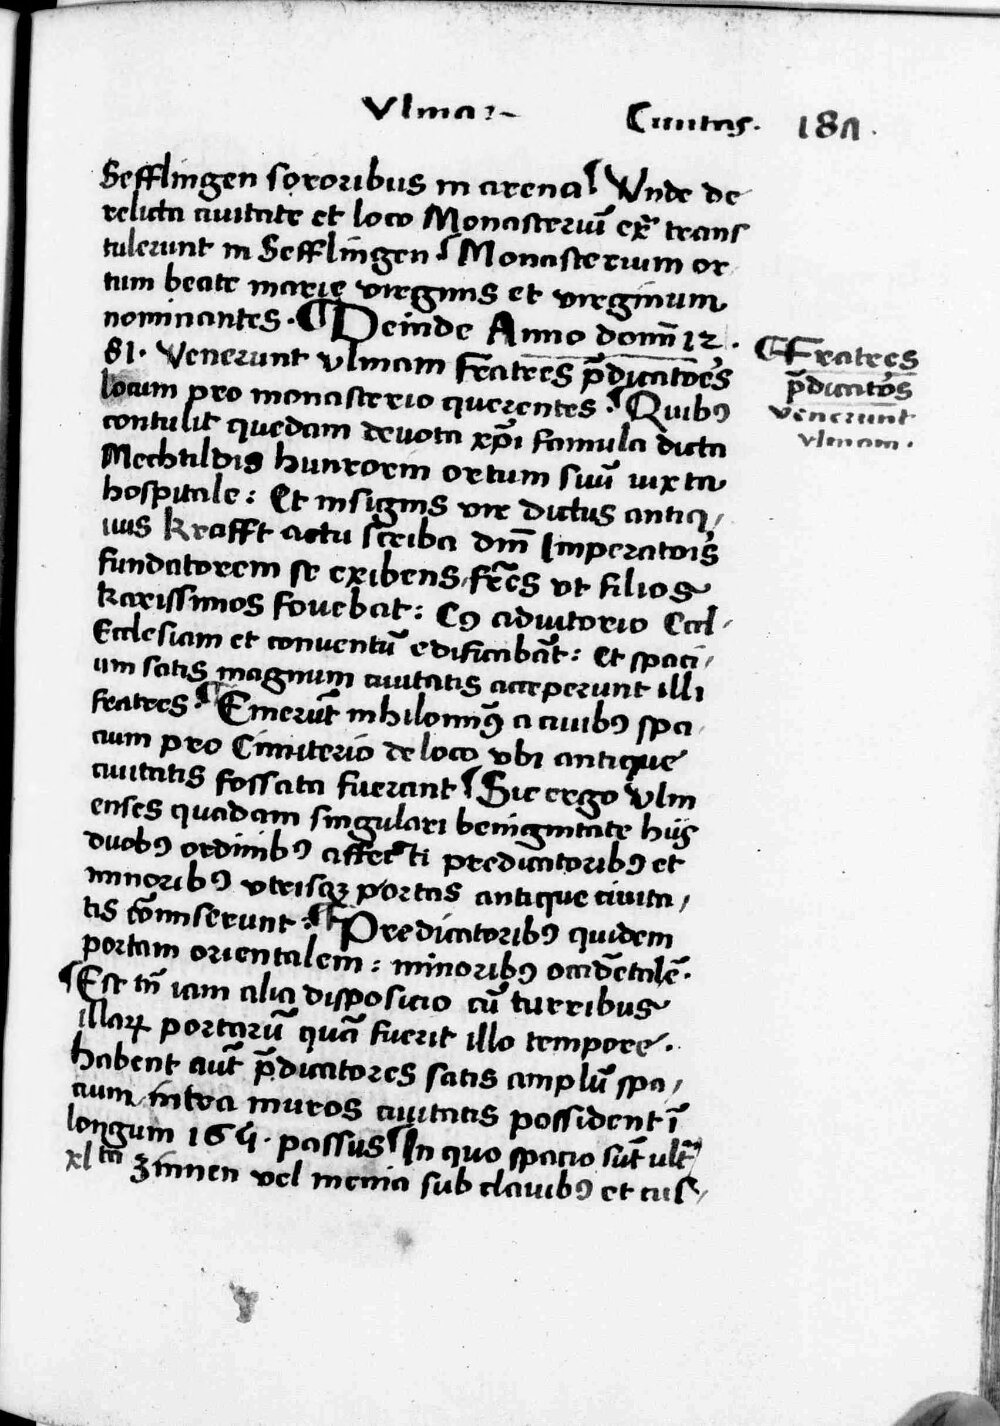 Vlma Ciuitas. 187.
Sefflingen sororibus in arena Vnde de
relicta ciuitate et loco Monasteriū eꝝ trans
tulerunt in Sefflingen Monasterium or
tum beate marie virginis et virginum
nominantes. ¶ Deinde Anno domī 12.
81. Venerunt vlmam fratres p̄dicatoēs
locum pro monasterio querentes. Quibꝰ
contulit quedam deuota xp̄i famula dicta
Mechtildis hunrorem ortum suū iuxta
hospitale: Et insignis vir dictus antiq,
uus krafft actu scriba dm̄ Imperatoris
fundatorem se exibens, fr̄es vt filios
karissimos fouebat: Cꝰ adiutorio Eccl,
Ecclesiam et conuentū edificabāt: Et spaci,
um satis magnum ciuitatis acceperunt illi
fratres. ¶ Emerūt nihilominꝰ a ciuibꝰ spa
cium pro Cimiterio de loco vbi antique
ciuitatis fossata fuerant Sic ergo vlm
enses quadam singulari benignitate hijs
duobꝰ ordinibꝰ affecti predicatoribꝰ et
minoribꝰ vtrisqꝫ portas antique ciuita,
tis cōmiserunt: ¶ Predicatoribꝰ quidem
portam orientalem: minoribꝰ occidētalē.
¶ Est tn̄ iam alia disposicio cū turribus
illaꝝ portarū quā fuerit illo tempore.
habent aūt p̄dicatores satis amplū spa,
cium, intra muros ciuitatis possident ī
longum 164. passus In quo spacio sūt ult̄
xl ta zinnen vel menia sub clauibꝰ et cus,
¶ Fratres
p̄dicatōs
venerūnt
vlmam.